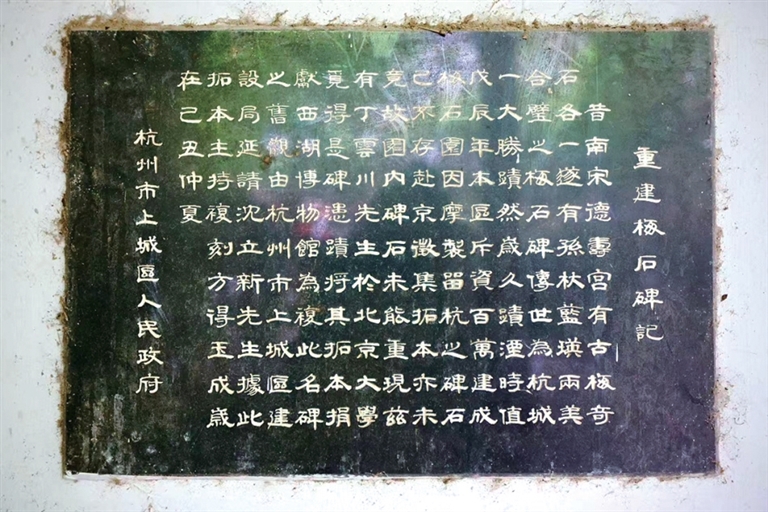 重建梅石碑記
昔南宋德壽宮有古梅奇
石各一遂有孫杕藍瑛兩美
合璧之梅石碑傳世為杭城
一大勝蹟然歲久蹟湮時值
戊辰年本區斥資百萬建成
梅石園因摩製留杭之碑石
已不存赴京徵集拓本亦未
竟故園內碑石未能重現茲
有丁雲川先生於北京大學
覓得是碑遺蹟將其拓本捐
獻西湖博物館為複此名碑
之舊觀由杭州市上城區建
設局延請沈立新先生據此
拓本主持複刻方得玉成歲
在己丑仲夏
杭州市上城區人民政府